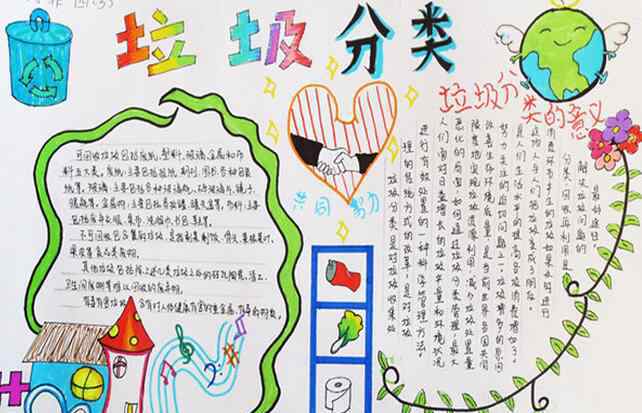 四(3)
垃圾分类
垃圾分
类的意义
可回收垃圾包括废纸、塑料、玻璃、金属和布
料五大类。废纸:主要包括报刊、图书、各种包装
纸等。玻璃:主要包括各种玻璃瓶、碎玻璃片、镜子、
暖瓶等。金属物:主要包括易拉罐、罐头盒等。布料:主要
包括废弃衣服、桌布、洗脸巾、书包、鞋等。
果皮等食品类废物。
其他垃圾包括除上述几类垃圾之外的砖瓦陶瓷、渣土、
卫生间废纸等难以回收的废弃物。
有毒有害垃圾 含有对人体健康有害的重金属、有毒的物质
共同 努力
解决垃圾问题的
分类回收再利用是
是人们生活水平的提高各项消费增加了。
努力关注的迫切问题之一垃圾增多的原因
改善生命环境质量是当前世界各国共同
限度地实现垃圾资源利用减少垃圾处置量
恶化的局面如何通过垃圾分类管理最大
人们面对日益增长的垃圾产量和环境状况
进行有效处置的一种科学管理方法。
理的传统方式的改革,是对垃圾
垃圾分类是对垃圾收集处